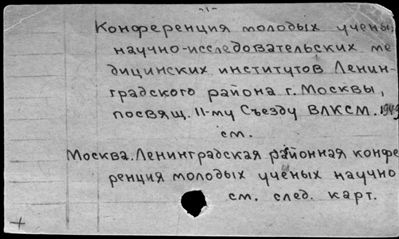 -1-
Конференция молодых ученых
научно-исследовательских ме
дицинских институтов Ленин-
градского района г. Москвы,
посвящ. 11-му Съезду ВЛКСМ. 1949
см.
Москва. Ленинградская районная конфе
ренция молодых ученых научно
см. след. карт.